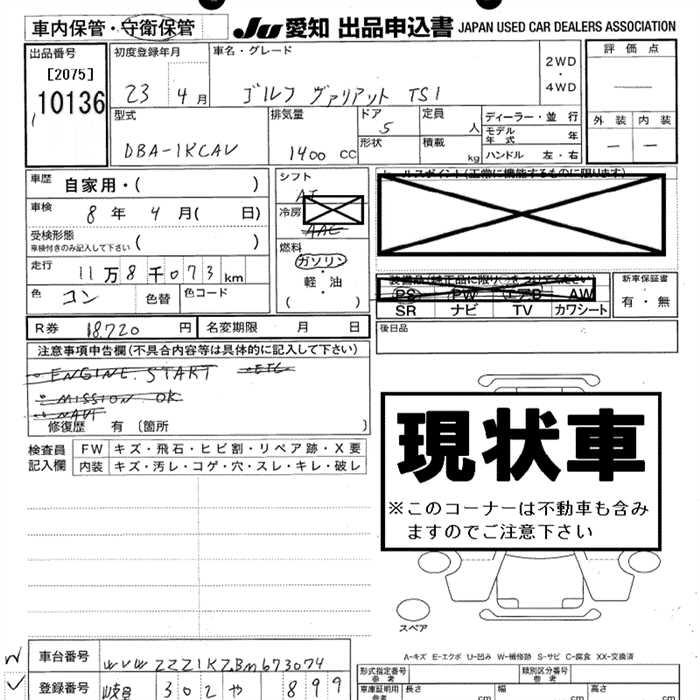 車内保管・守衛保管 JU 愛知 出品申込書 JAPAN USED CAR DEALERS ASSOCIATION
出品番号 初度登録年月 車名・グレード 評価点
[2075] 2WD・4WD
10136 23 4月 ゴルフ ヴァリアント TSI
外装 内装
型式 排気量 ドア 5 定員 人 ディーラー・並行
モデル年式 年
DBA-1KCAV 1400 CC 形状 積載 kg ハンドル 左・右
車歴 自家用・( ) シフト AT セールスポイント(正常に機能するものに限ります)
車検 8年 4月( 日) 冷房 AAC
受検形態
車検付きのみ記入して下さい ( ) 燃料 ガソリン・軽・油 ( )
走行 11万8千073km
装備品(純正品に限り○をつけてください) 新車保証書
色 コン 色替 色コード PS PW エアB AW 有・無
SR ナビ TV カワシート
R券 18,720円 名変期限 月 日 後日品
注意事項申告欄(不具合内容等は具体的に記入して下さい)
ENGINE START ETC
MISSION OK
NAVI
修復歴 有〔箇所 )
現状車
※このコーナーは不動車も含みますのでご注意下さい
検査員記入欄 FW キズ・飛石・ヒビ割・リペア跡・X要
内装 キズ・汚レ・コゲ・穴・スレ・キレ・破レ
スペア
A-キズ E-エクボ U-凹み W-補修跡 S-サビ C-腐食 XX-交換済
車台番号 WVWZZZ1KZBM673074 形式指定番号 参考 類別区分番号 参考
登録番号 岐阜 302 や 899 車庫証明用 参考 長さ cm 幅 cm 高さ cm